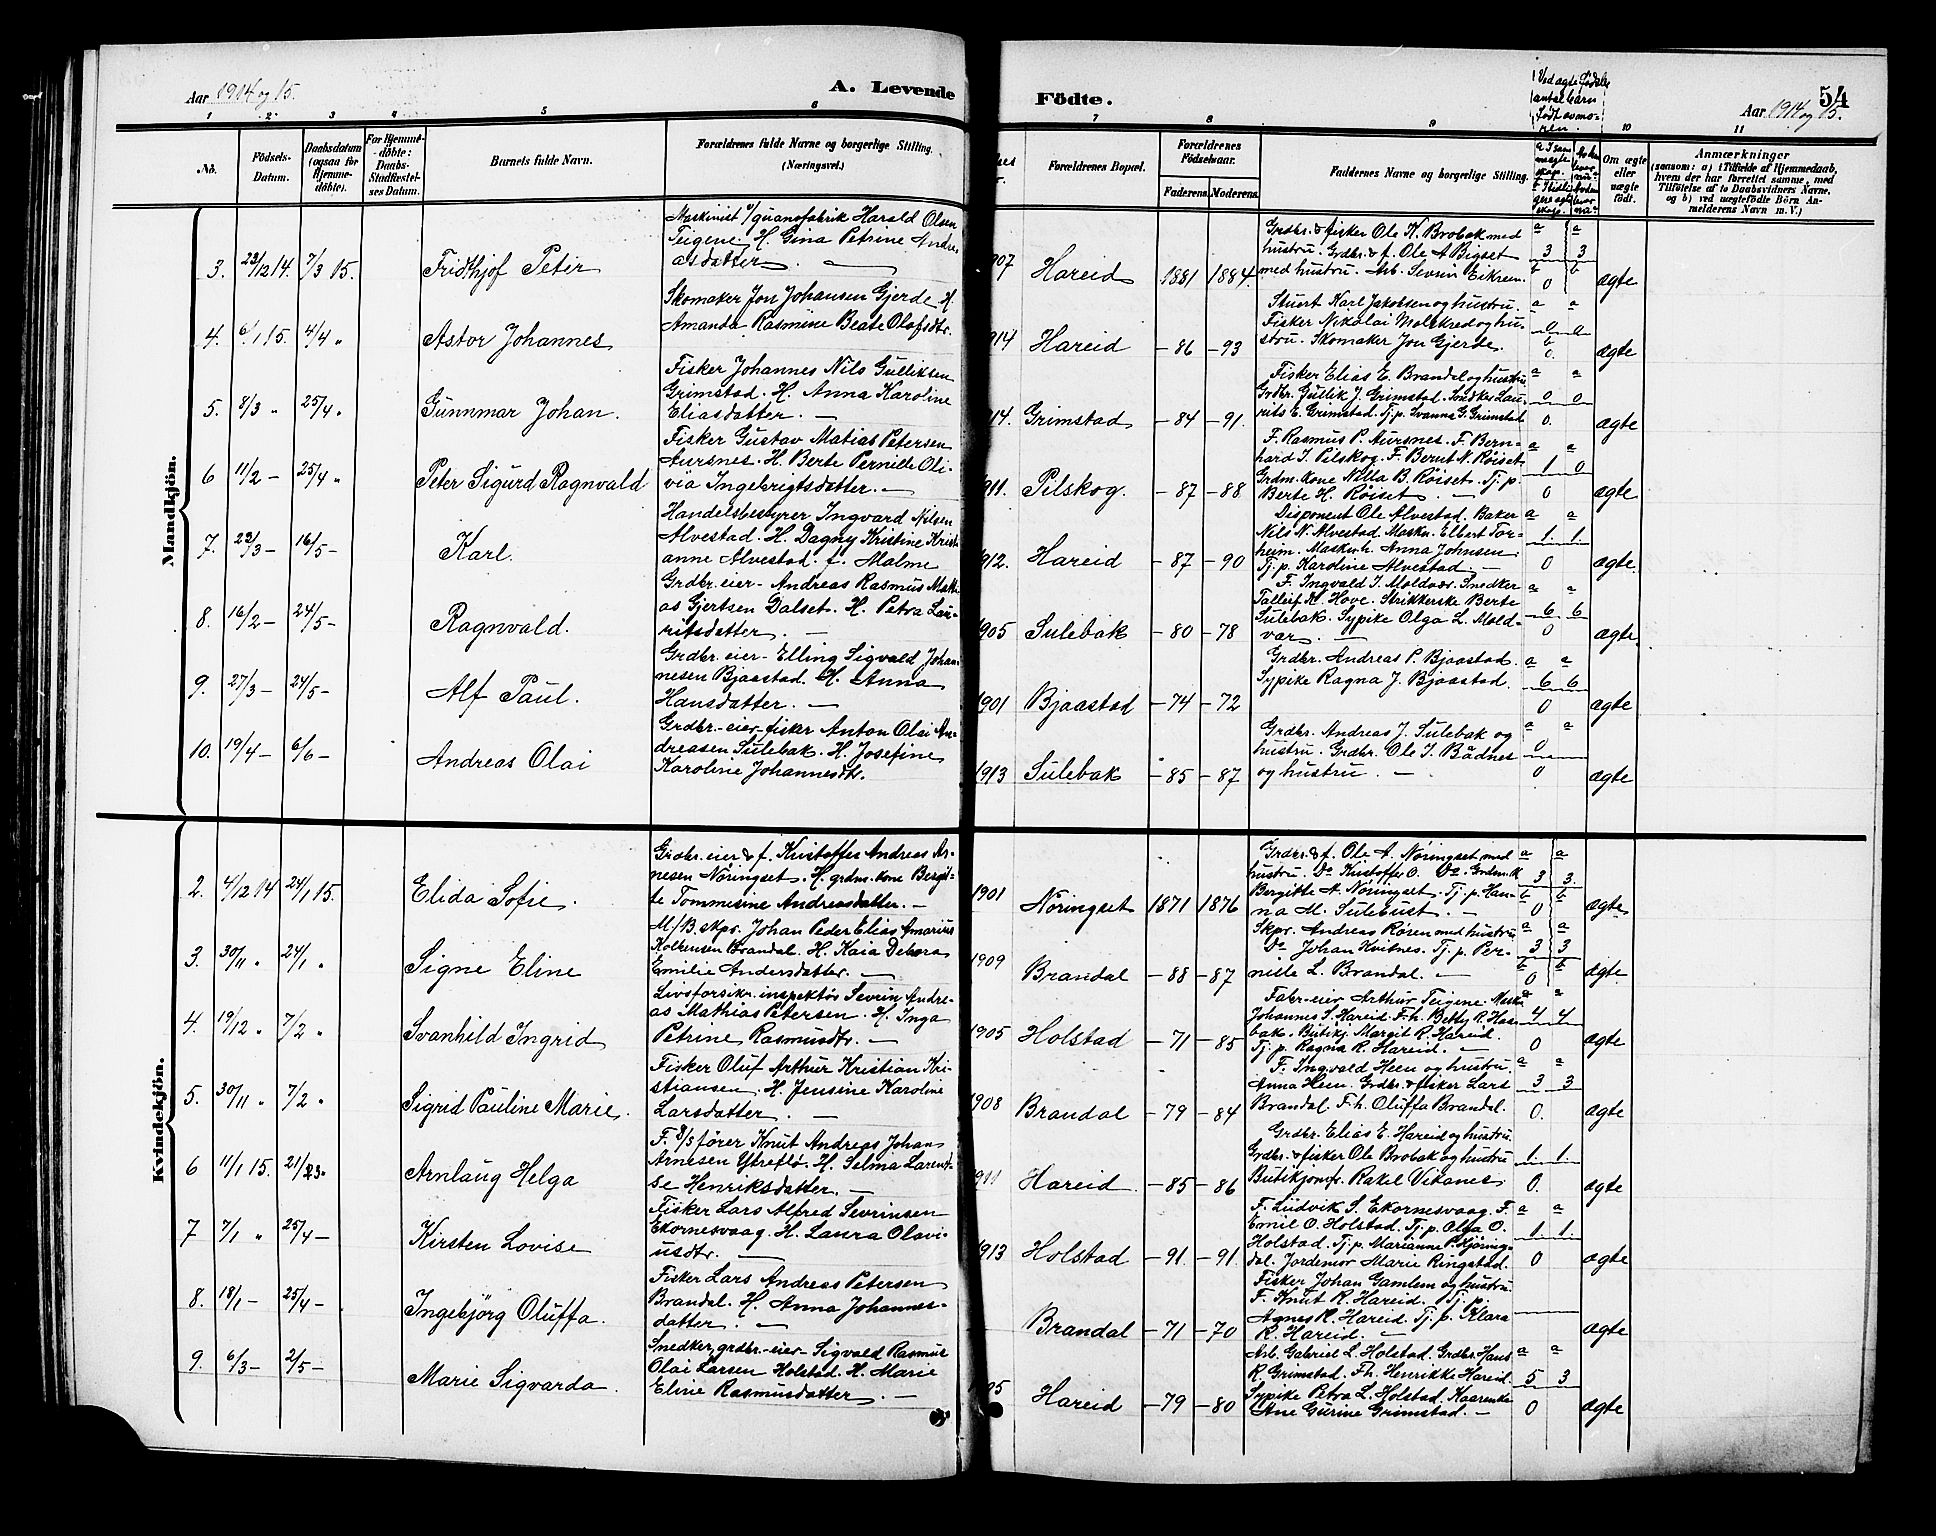 Aar 1914 og 15.
A. Levende
Födte.
54
Aar 1914 og 15.
1 2 3 4 5 6
7 8 9 10 11
Ved ægte Födsler
antal barn
Född av mo-
ren.
No.
Födsels-
Datum.
Daabsdatum
(ogsaa for
Hjemme-
döbte).
For Hjemme-
döbte:
Daabs-
Stadfæstel-
ses Datum.
Barnets fulde Navn.
Forældrenes fulde Navne og borgerlige Stilling.
(Næringsvei.)
Forældrenes Bopæl.
Forældrenes
Födselsaar.
Faderens. Moderens.
Faddernes Navne og borgerlige Stilling.
Om ægte
eller
uægte
födt.
Anmærkninger
(saasom: a) i Tilfælde af Hjemmedaab,
hvem der har forrettet samme, med
Tilföielse af to Daabsvidners Navne,
og b) ved uægtefödte Börn An-
melderens Navn m. V.)
Mandkjön.
3. 23/12 14. 7/3 15. Fridthjof Peter
Maskinist v/guanofabrik Harald Olsen
Teigene. H. Gina Petrine Andre-
asdatter. —
1907 Hareid 1881 1884.
Grdbr. & fisker Ole K. Brobak med
hustru. Grdbr. & f. Ole A Bigset
med hustru. Arb. Sevrin Eikrem.
a 3 a 3 b 0 b ægte
4. 6/1 15. 4/4 " Astor Johannes
Skomaker Jon Johansen Gjerde. H.
Amanda Rasmine Beate Olafsdtr.
1914 Hareid —86 —93
Stuert Karl Jakobsen og hustru
Fisker Nikolai Molskred og hu-
stru. Skomaker Jon Gjerde.
a 0 a 0 b 0. ægte
5. 8/3 " 25/4 " Gunnmar Johan.
Fisker Johannes Nils Gulliksen
Grimstad. H. Anna Karoline
Eliasdatter. —
1914. Grimstad —84 —91.
Fisker Elias E. Brandal og hustru
Grdbr. Gullik J. Grimstad. Snedker Lau-
rits E. Grimstad. Tj.p. Svanna G. Grimstad
a 0 a 0 0. ægte
6 11/2 — 25/4 " Peter Sigurd Ragnvald
Fisker Gustav Matias Petersen
Aursnes. H. Berte Pernille Oli-
via Ingebrigtsdatter. —
1911. Pilskog. —87 —88
F. Rasmus P. Aursnes. F. Bern-
hard I. Pilskog. F. Berut N. Röiset
Grdm.kone Nilla B. Röiset. Tj.p
Berte H. Röiset. —
a 1 a 0 0 ægte
7. 23/3 — 16/5 — Karl.
Handelsbestyrer Ingvard Nilsen
Alvestad. H. Dagny Kristine Krist-
ianne Alvestad. f. Malme
1912. Hareid —87 —90
Disponent Ole Alvestad. Baker
Nils N. Alvestad. Maskn. Elbert Tor-
heim. Maskin.h. Anna Johnsen.
Tj.p. Karoline Alvestad. —
a 1. a 1. 0 ægte.
8. 16/2 — 24/5 — Ragnvald.
Grdbr.eier — Andreas Rasmus Matti-
as Gjertsen Dalset. H. Petra Lau-
ritsdatter. —
1905 Sulebak —80 —78
F. Ingvald I. Moldvær. Snedker
Talleif K. Hove. Strikkerske Berte
Sulebak. Sypike Olga L. Mold-
vær. —
a 6 a 6 0 ægte
9. 27/3 — 24/5 — Alf Paul.
Grdbr.eier — Elling Sigvald Johan-
nesen Bjaastad. H. Anna
Hansdatter. —
1901 Bjaastad —74 —72
Grdbr. Andreas P. Bjaastad.
Sypike Ragna J. Bjaastad.
a 6 a 6 0 ægte
10. 19/4 — 6/6 — Andreas Olai
Grdbr.-eier-fisker Anton Olai An-
dreasen Sulebak. H. Josefine
Karoline Johannesdtr.
1913 Sulebak —85 —87
Grdbr. Andreas J. Sulebak og
hustru. Grdbr. Ole I. Bådnes
og hustru. —
a 0 a 0 ægte
Kvindekjön.
2. 4/12 14 24/1 15. Elida Sofie.
Grdbr.eier & f. Kristoffer Andreas Ar-
nesen Nöringset. H. grdm.kone Bergit-
te Tommesine Andreasdatter. —
1901 Nöringset 1871 1876
Grdbr. & f. Ole A. Nöringset med
hustru. Do Kristoffer O. Do. Grdm.K
Bergitte A. Nöringset. Tj.p. Han-
na M. Sulebust. —
a 3 a 3. b 0 b ægte
3. 30/11 " 24/1 " Signe Eline
M/B. skpr. Johan Peder Elias Amarius
Kolbensen Brandal. H. Kaia Debora
Emilie Andersdatter. —
1909 Brandal —88 —87
Skpr. Andreas Rören med hustru
Do Johan Kvitnes. Tj.p. Per-
nille L. Brandal. —
a 3 a 3 b 0 b ægte
4. 19/12 " 7/2 " Svanhild Ingrid
Livsforsikr.inspektör Sevrin Andre-
as Mathias Petersen. H. Inga
Petrine Rasmusdtr. —
1905 Holstad —71 —85
Fabr-eier Arthur Teigene. Maskn
Johannes S. Hareid. F.h. Betty R. Has-
bak. Butikj. Margit R. Hareid.
Tj.p. Ragna R. Hareid. —
a 4 a 4 0 ægte
5. 30/11 " 7/2 " Sigrid Pauline Marie.
Fisker Oluf Arthur Kristian Kri-
stiansen. H. Jensine Karoline
Larsdatter. —
1908 Brandal —79 —84
F. Ingvald Heen og hustru
Anna Heen. Grdbr. & fisker Lars
Brandal. F.h. Oluffa Brandal.
a 3 a 3 0. ægte
6 11/1 15. 21/23 " Arnlaug Helga
F. D/S förer Knut Andreas Johan
Arnesen Ytreflö. H. Selma Larent-
se Henriksdatter. —
1911 Hareid. —85 —86
Grdbr. Elias E. Hareid og hustru.
Grdbr. & fisker Ole Brobak og hustru
Butikjomfr. Rakel Vikanes
1. 1. 0. ægte
7 7/1 " 25/4 — Kirsten Lovise
Fisker Lars Alfred Sevrinsen
Ekornesvaag. H. Laura Olavi-
usdtr. —
1913 Holstad —91 —91.
F. Ludvik S. Ekornesvaag. F.
Emil O. Holstad. Tj.p. Olga O.
Holstad. Tj.p. Marianne P. Hjöring-
dal. Jordemor Marie Ringstad.
a 1. a 1. 0 ægte
8. 18/1 — 25/4 — Ingebjörg Oluffa.
Fisker Lars Andreas Petersen
Brandal. H. Anna Johannes-
datter. —
Brandal —71 —70
Fisker Johan Gamlem og hustru
F. Knut R. Hareid. Tj.p.
Agnes R. Hareid. Tj.p. Klara
R. Hareid. —
ægte
9. 6/3 — 2/5 — Marie Sigvarda.
Snedker, grdbr.-eier — Sigvald Rasmus
Olai Larsen Holstad. H. Marie
Eline Rasmusdatter. —
1905 Hareid —79 —80
Arb. Gabriel L. Holstad. Grdbr. Hans
R. Grimstad. F.h. Henrikke Hareid.
Sypike Petra L. Holstad. Kaarenke
Ane Gurine Grimstad. —
a 5 a 3 0 ægte